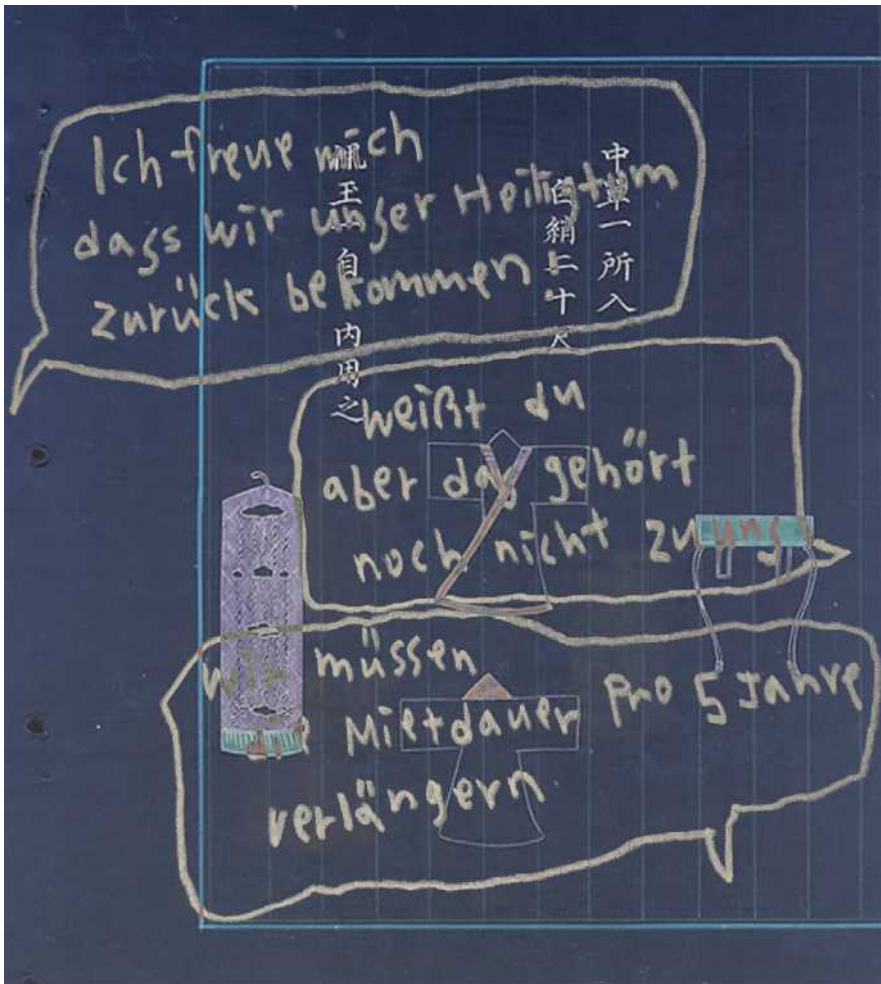 Ich freue mich
dass wir unser Heiligtum
zurück bekommen
中單一所入
白綃二十尺
玉 自 內用之
weißt du
aber das gehört
noch nicht zu uns
wir müssen
Mietdauer pro 5 Jahre
verlängern